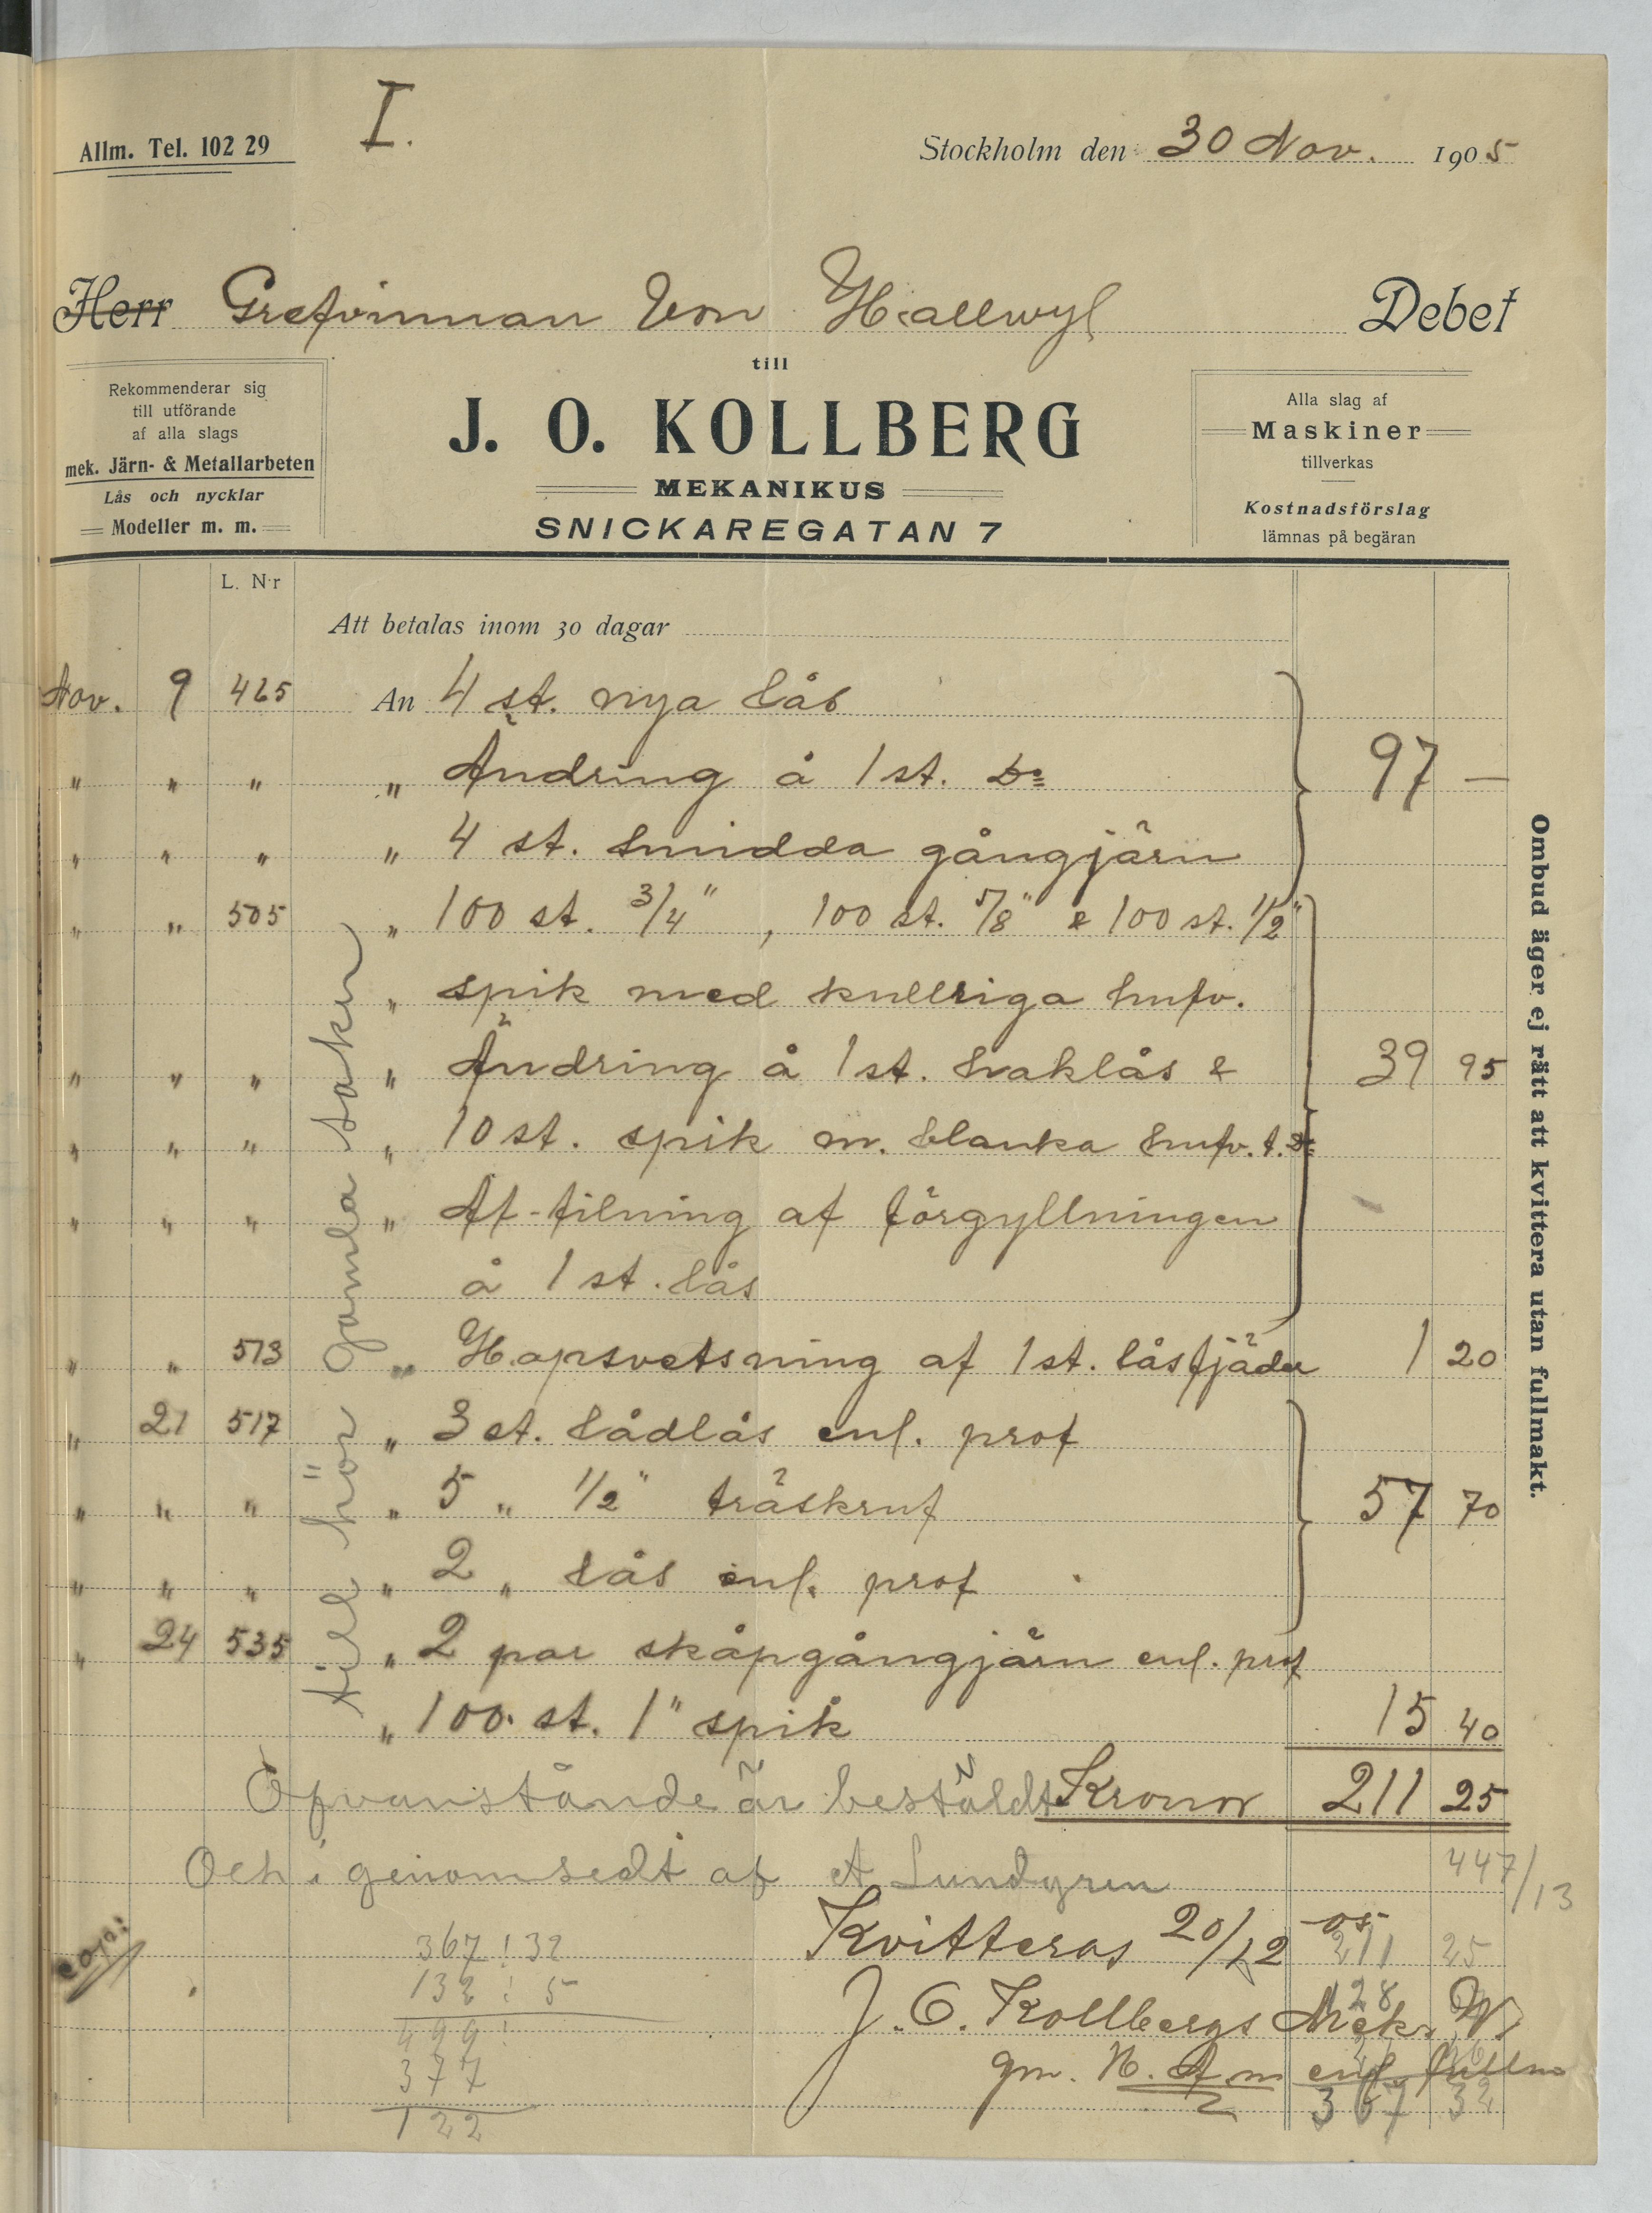 I.
Allm. Tel. 102 29
Stockholm den 30 Nov. 1905
Herr Grefvinnan Von Hallwyl Debet
till
Rekommenderar sig
till utförande
af alla slags
mek. Järn- & Metallarbeten
Lås och nycklar
Modeller m. m.
J. O. KOLLBERG
MEKANIKUS
SNICKAREGATAN 7
Alla slag af
Maskiner
tillverkas
Kostnadsförslag
lämnas på begäran
L. Nr
Att betalas inom 30 dagar
Nov. 9 465 An 4 st. nya lås
" " " " Ändring å 1 st. Do 97 —
" " " " 4 st. smidda gångjärn
" " 505 " 100 st. 3/4", 100 st. 5/8" & 100 st. 1/2"
" spik med kullriga hufv.
" " " " Ändring å 1 st. haklås & 39 95
" " " " 10 st. spik m. blanka hufv. t. Do
" " " " Af-filning af förgyllningen
å 1 st. lås
" " 513 " Hopsvetsning af 1 st. låsfjäder 1 20
" 21 517 " 3 st. lådlås enl. prof
" " " " 5 " 1/2" träskruf 57 70
" " " " 2 " lås enl. prof
" 24 535 " 2 par skåpgångjärn enl. prof
" 100 st. 1" spik 15 40
till hör gamla saker
Ofvanstånde är bestäldt Kronor 211 25
Och igenomsedt af A Lundgren
447/13
Kvitteras 20/12 05
J. O. Kollbergs Mek. V.
gm. enl. fullm
copi:
367 ! 32
132 : 5
499 !
377
122
211 25
128
367 32
Ombud äger ej rätt att kvittera utan fullmakt.